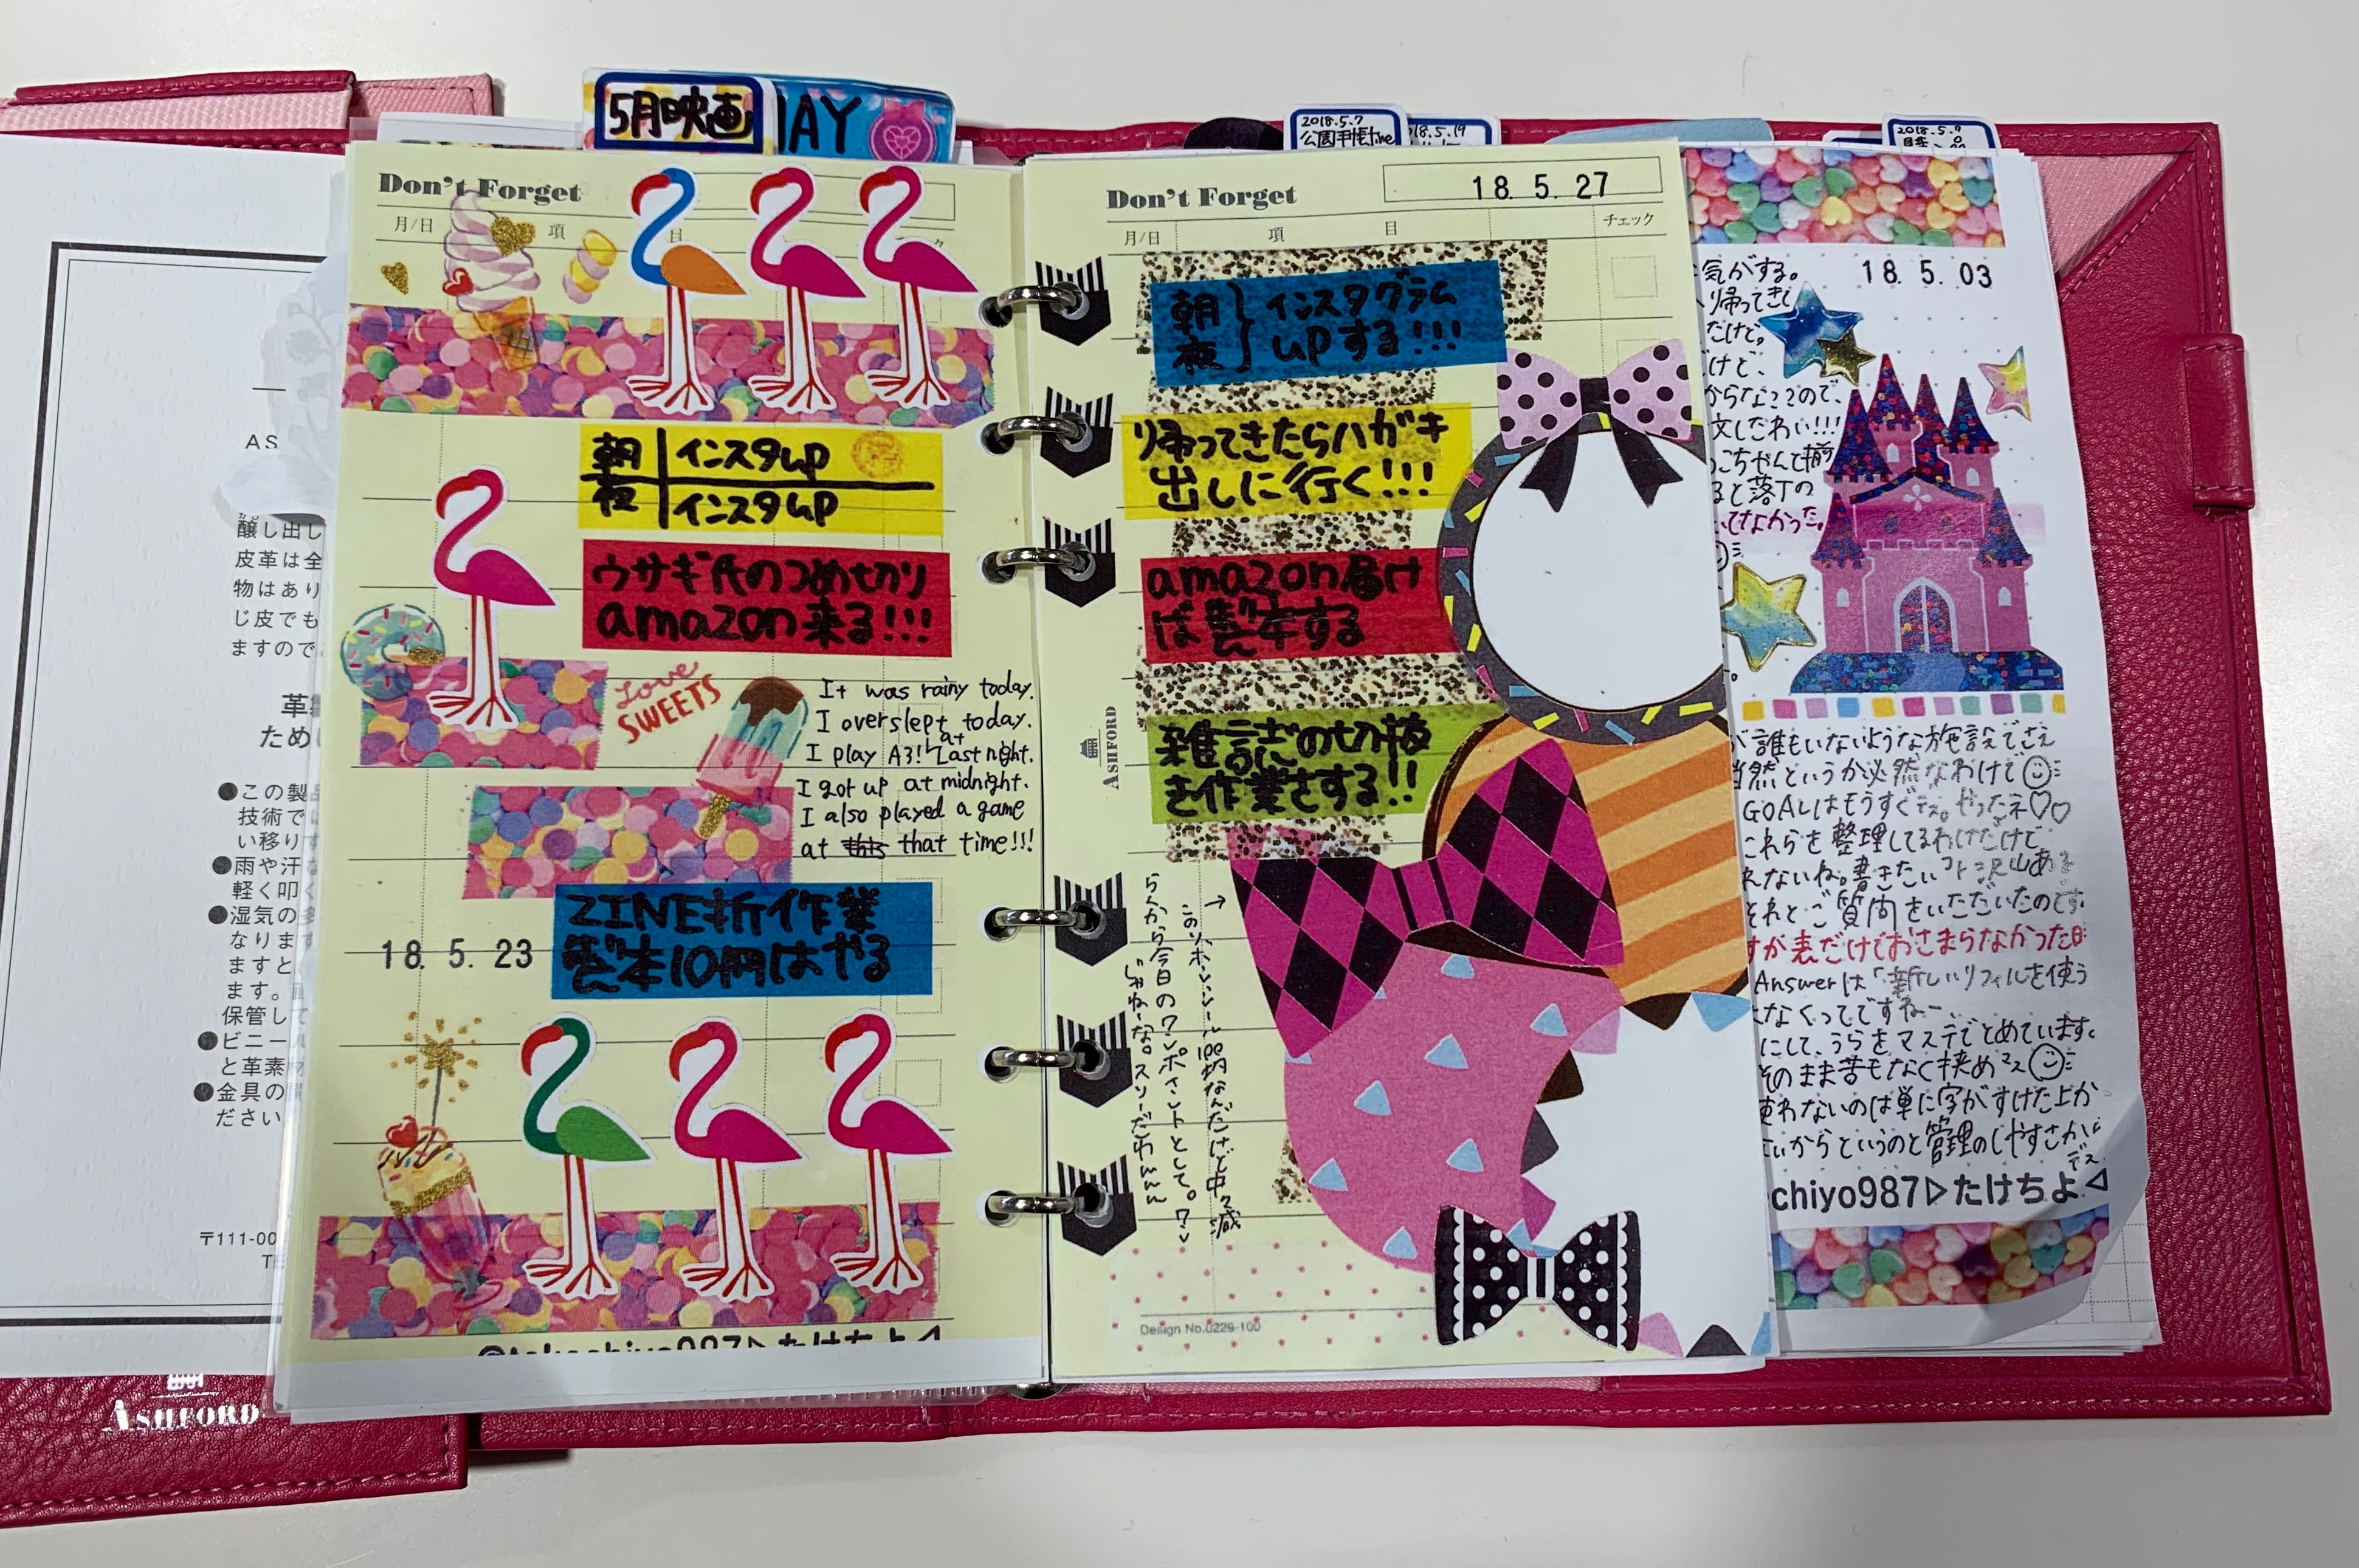 5月映画
MAY
2018.5.7
公園手帳time
18.5.19
2018.5.9
AS
醸し出し
皮革は全
物はあり
じ皮でも
ますので
革
ため
●この製品
技術で
い移り
●雨や汗
軽く叩く
●湿気の多
なります
ますと
ます。
保管して
●ビニー
と革素
●金具の
ださい
〒111-00
ASHFORD
Don't Forget
月/日 項 目
朝 インスタup
夜 インスタup
ウサギ氏のつめ切り
amazon来る!!!
Love
SWEETS
It was rainy today.
I overslept today.
I play A3! at Last night.
I got up at midnight.
I also played a game
at this that time!!!
ZINE折作業
製本10冊はやる
18. 5. 23
@takechiyo987▷たけちよ◁
Don't Forget
18. 5. 27
月/日 項 目 チェック
朝 夜 } インスタグラム
upする!!!
帰ってきたらハガキ
出しに行く!!!
amazon届け
ば製本する
雑誌の切抜
き作業をする!!
ASHFORD
→このリボンシール100均なんだけど中々減
らんから今日のワンポイントとして。ワv
じゃかーな。スソーだわwww
Design No.0229-100
18. 5. 03
気がする。
帰ってきて
だけど。
けど、
からなここので、
文しだわい!!!
こちゃんて揃
ると落丁の
いてなかった
が誰もいないような施設でさえ
当然というか必然なわけで
GOALはもうすぐデス。やったネ♡♡
これらを整理してるわけだけど
れないね。書きたいコト沢山ある
それとご質問をいただいたのです
すが表だけでおさまらなかった日
Answerは「新しいリフィルを使う
なくってですねー、
にして、うらをマステでとめています。
そのまま苦もなく挟めマス
使わないのは単に字がすけた上か
いからというのと管理のしやすさかな
デス
chiyo987▷たけちよ◁